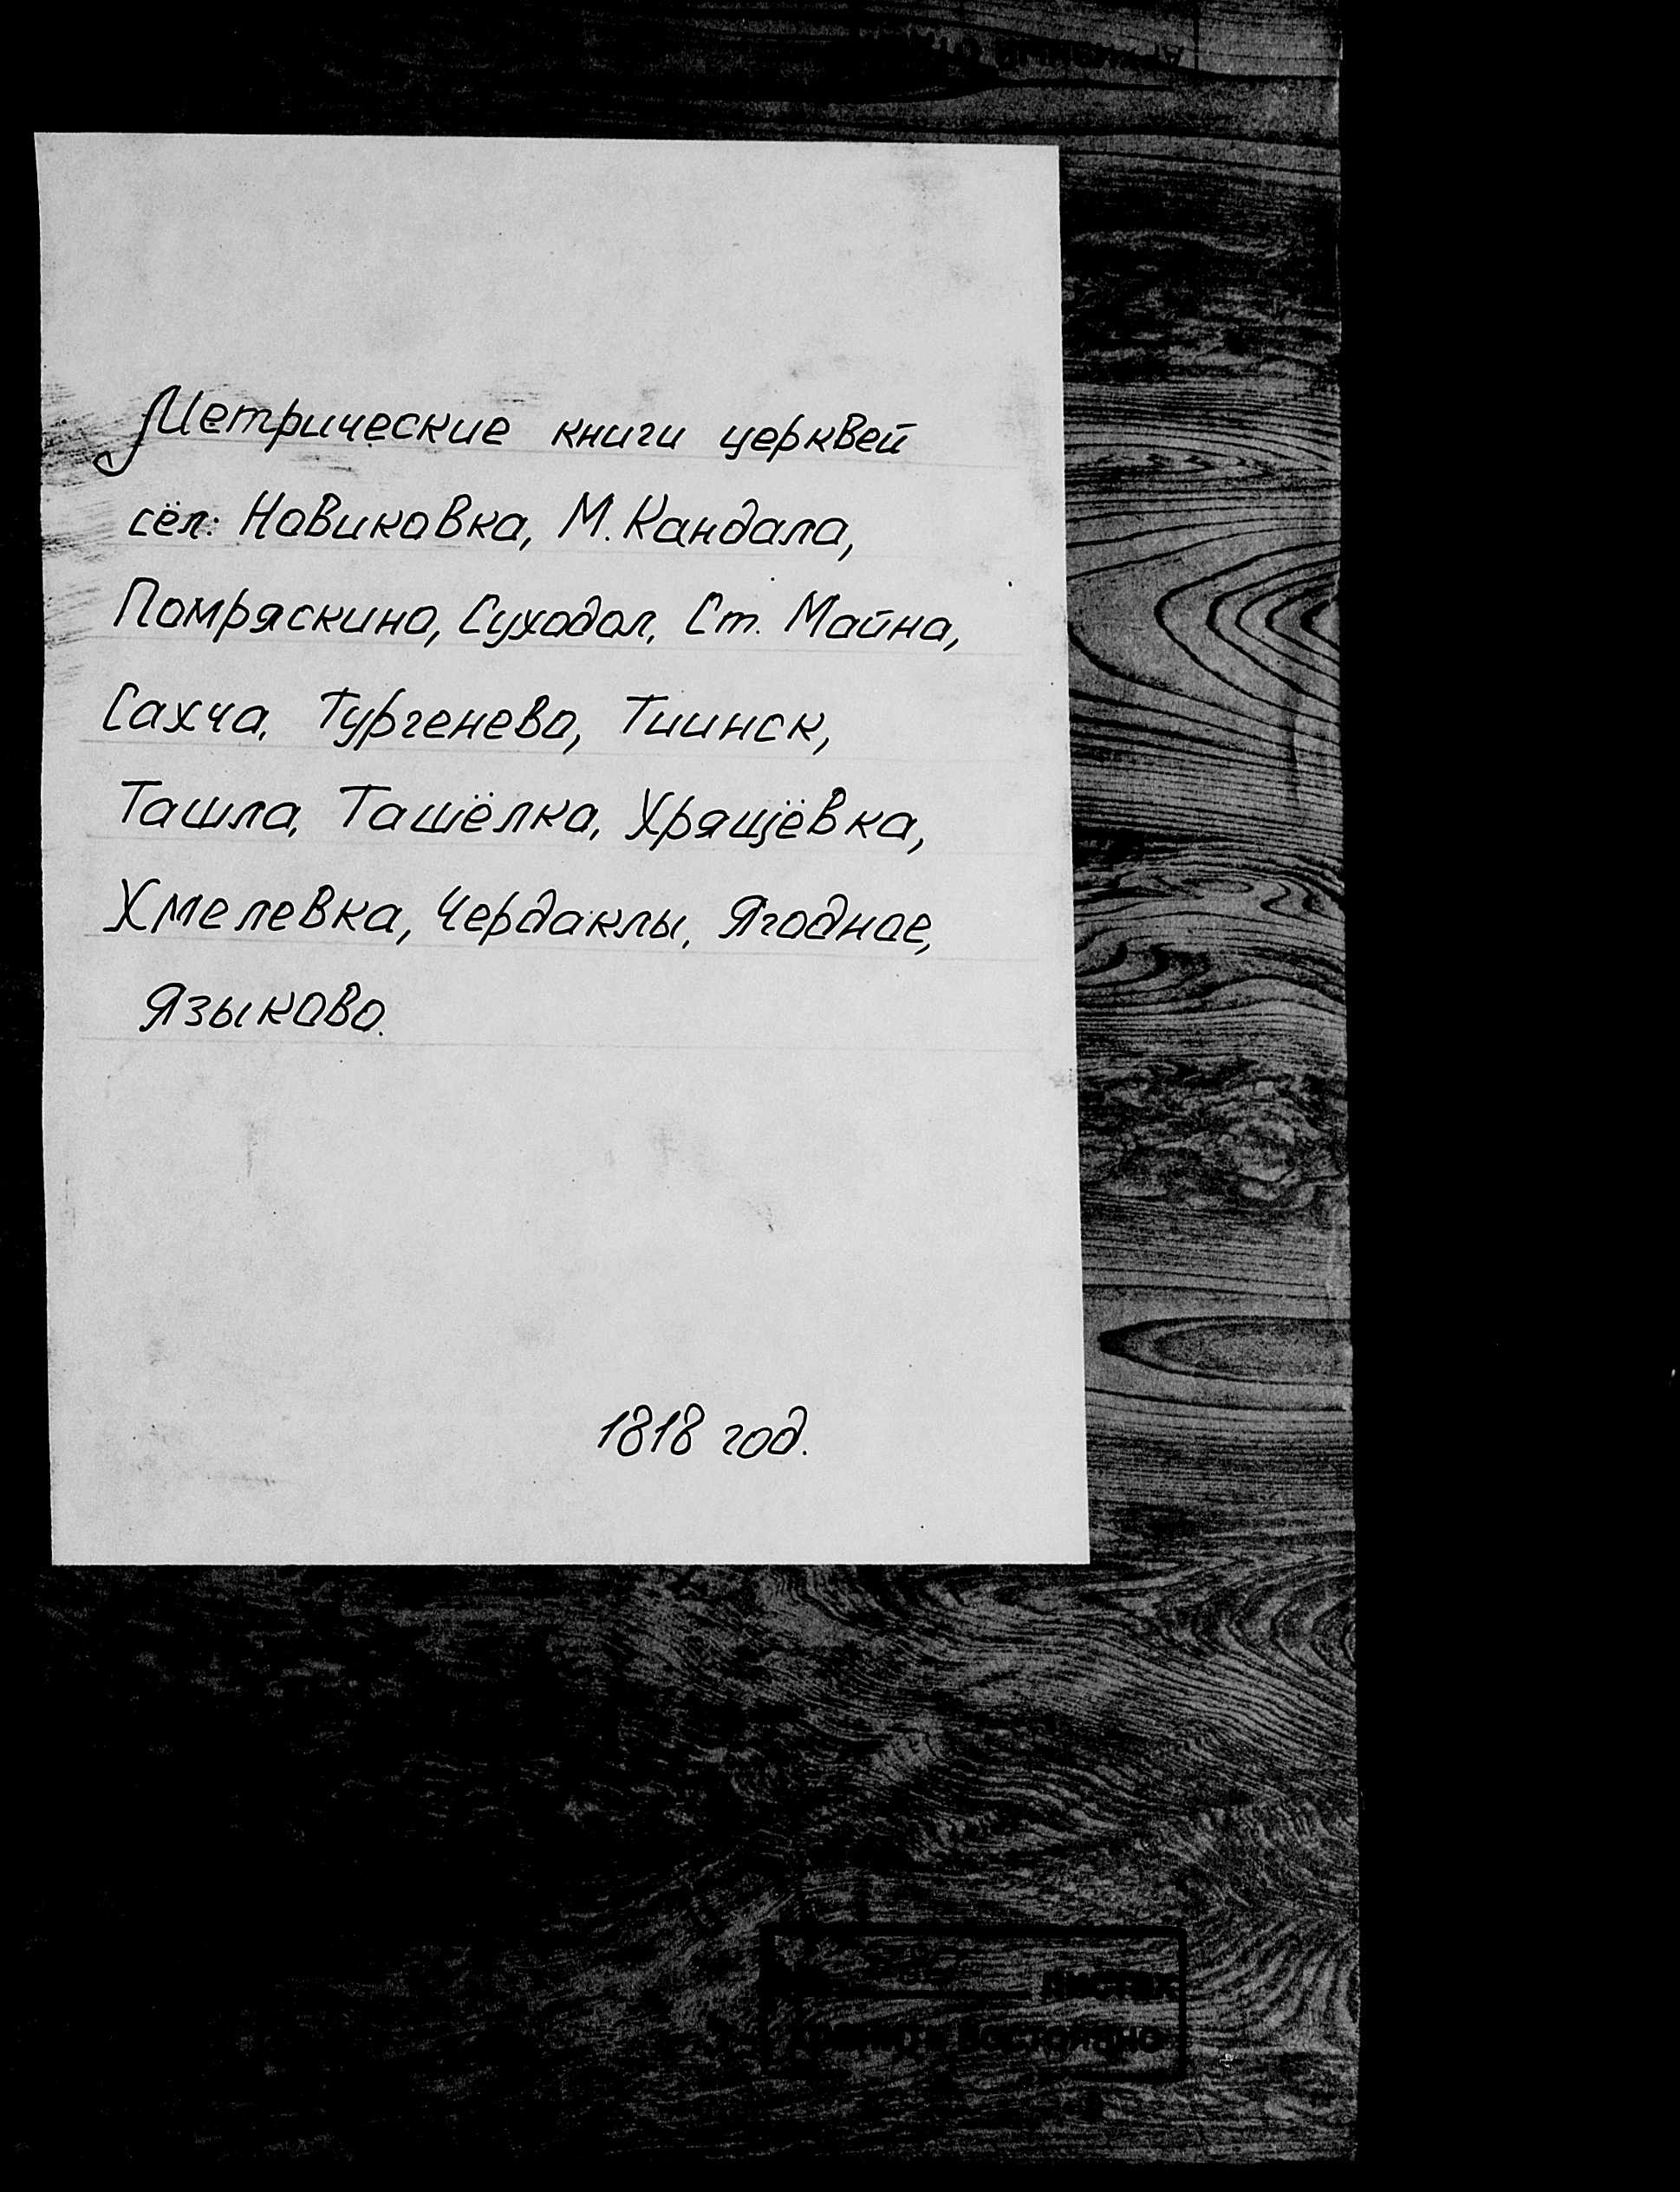 Метрические книги церквей
сёл: Новиковка, М. Кандала,
Помряскино, Суходол, Ст. Майна,
Сахча, Тургенево, Тиинск,
Ташла, Ташёлка, Хрящёвка,
Хмелевка, Чердаклы, Ягодное,
Языково.
1818 год.
хранить постоянно